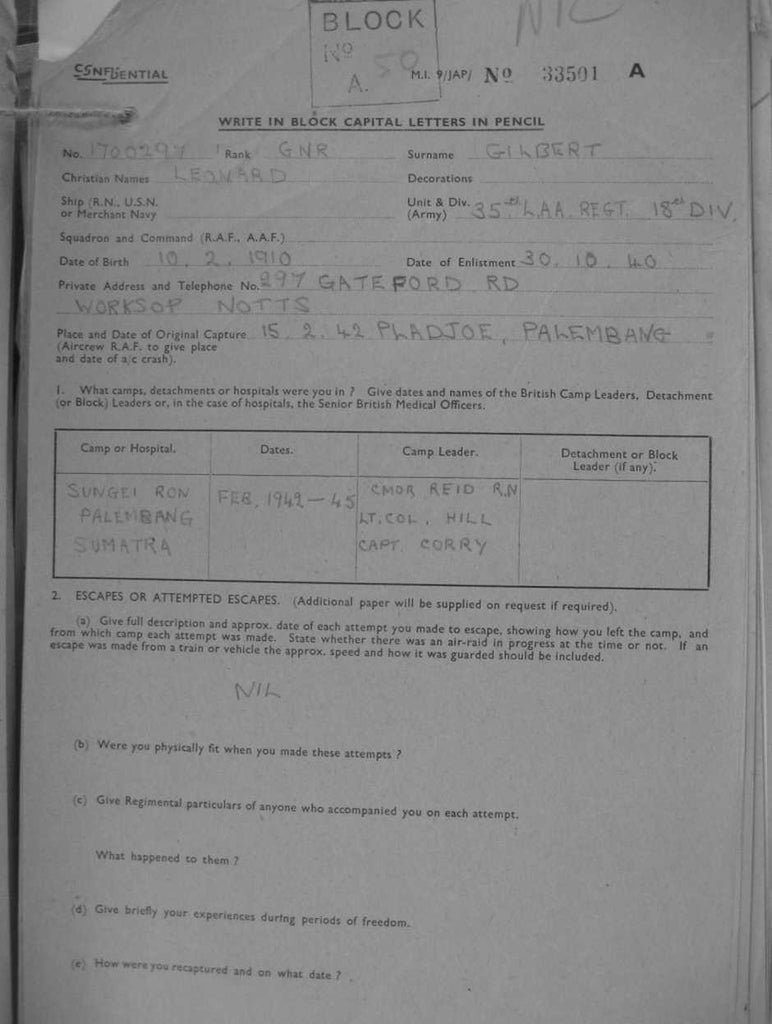 NIL
BLOCK
No
A. 50
CONFIDENTIAL
M.I. 9/JAP/ No 33501 A
WRITE IN BLOCK CAPITAL LETTERS IN PENCIL
No. 1700297 Rank GNR Surname GILBERT
Christian Names LEONARD Decorations
Ship (R.N., U.S.N. or Merchant Navy
Unit & Div. (Army) 35th L.A.A. REGT. 18th DIV.
Squadron and Command (R.A.F., A.A.F.)
Date of Birth 10. 2. 1910 Date of Enlistment 30. 10. 40
Private Address and Telephone No. 297 GATEFORD RD
WORKSOP NOTTS
Place and Date of Original Capture 15. 2. 42 PLADJOE, PALEMBANG
(Aircrew R.A.F. to give place
and date of a/c crash).
1. What camps, detachments or hospitals were you in ? Give dates and names of the British Camp Leaders, Detachment
(or Block) Leaders or, in the case of hospitals, the Senior British Medical Officers.
Camp or Hospital. Dates. Camp Leader. Detachment or Block
Leader (if any).
SUNGEI RON FEB, 1942 – 45 CMDR REID R.N
PALEMBANG LT. COL. HILL
SUMATRA CAPT. CORRY
2. ESCAPES OR ATTEMPTED ESCAPES. (Additional paper will be supplied on request if required).
(a) Give full description and approx. date of each attempt you made to escape, showing how you left the camp, and
from which camp each attempt was made. State whether there was an air-raid in progress at the time or not. If an
escape was made from a train or vehicle the approx. speed and how it was guarded should be included.
NIL
(b) Were you physically fit when you made these attempts ?
(c) Give Regimental particulars of anyone who accompanied you on each attempt.
What happened to them ?
(d) Give briefly your experiences during periods of freedom.
(e) How were you recaptured and on what date ?